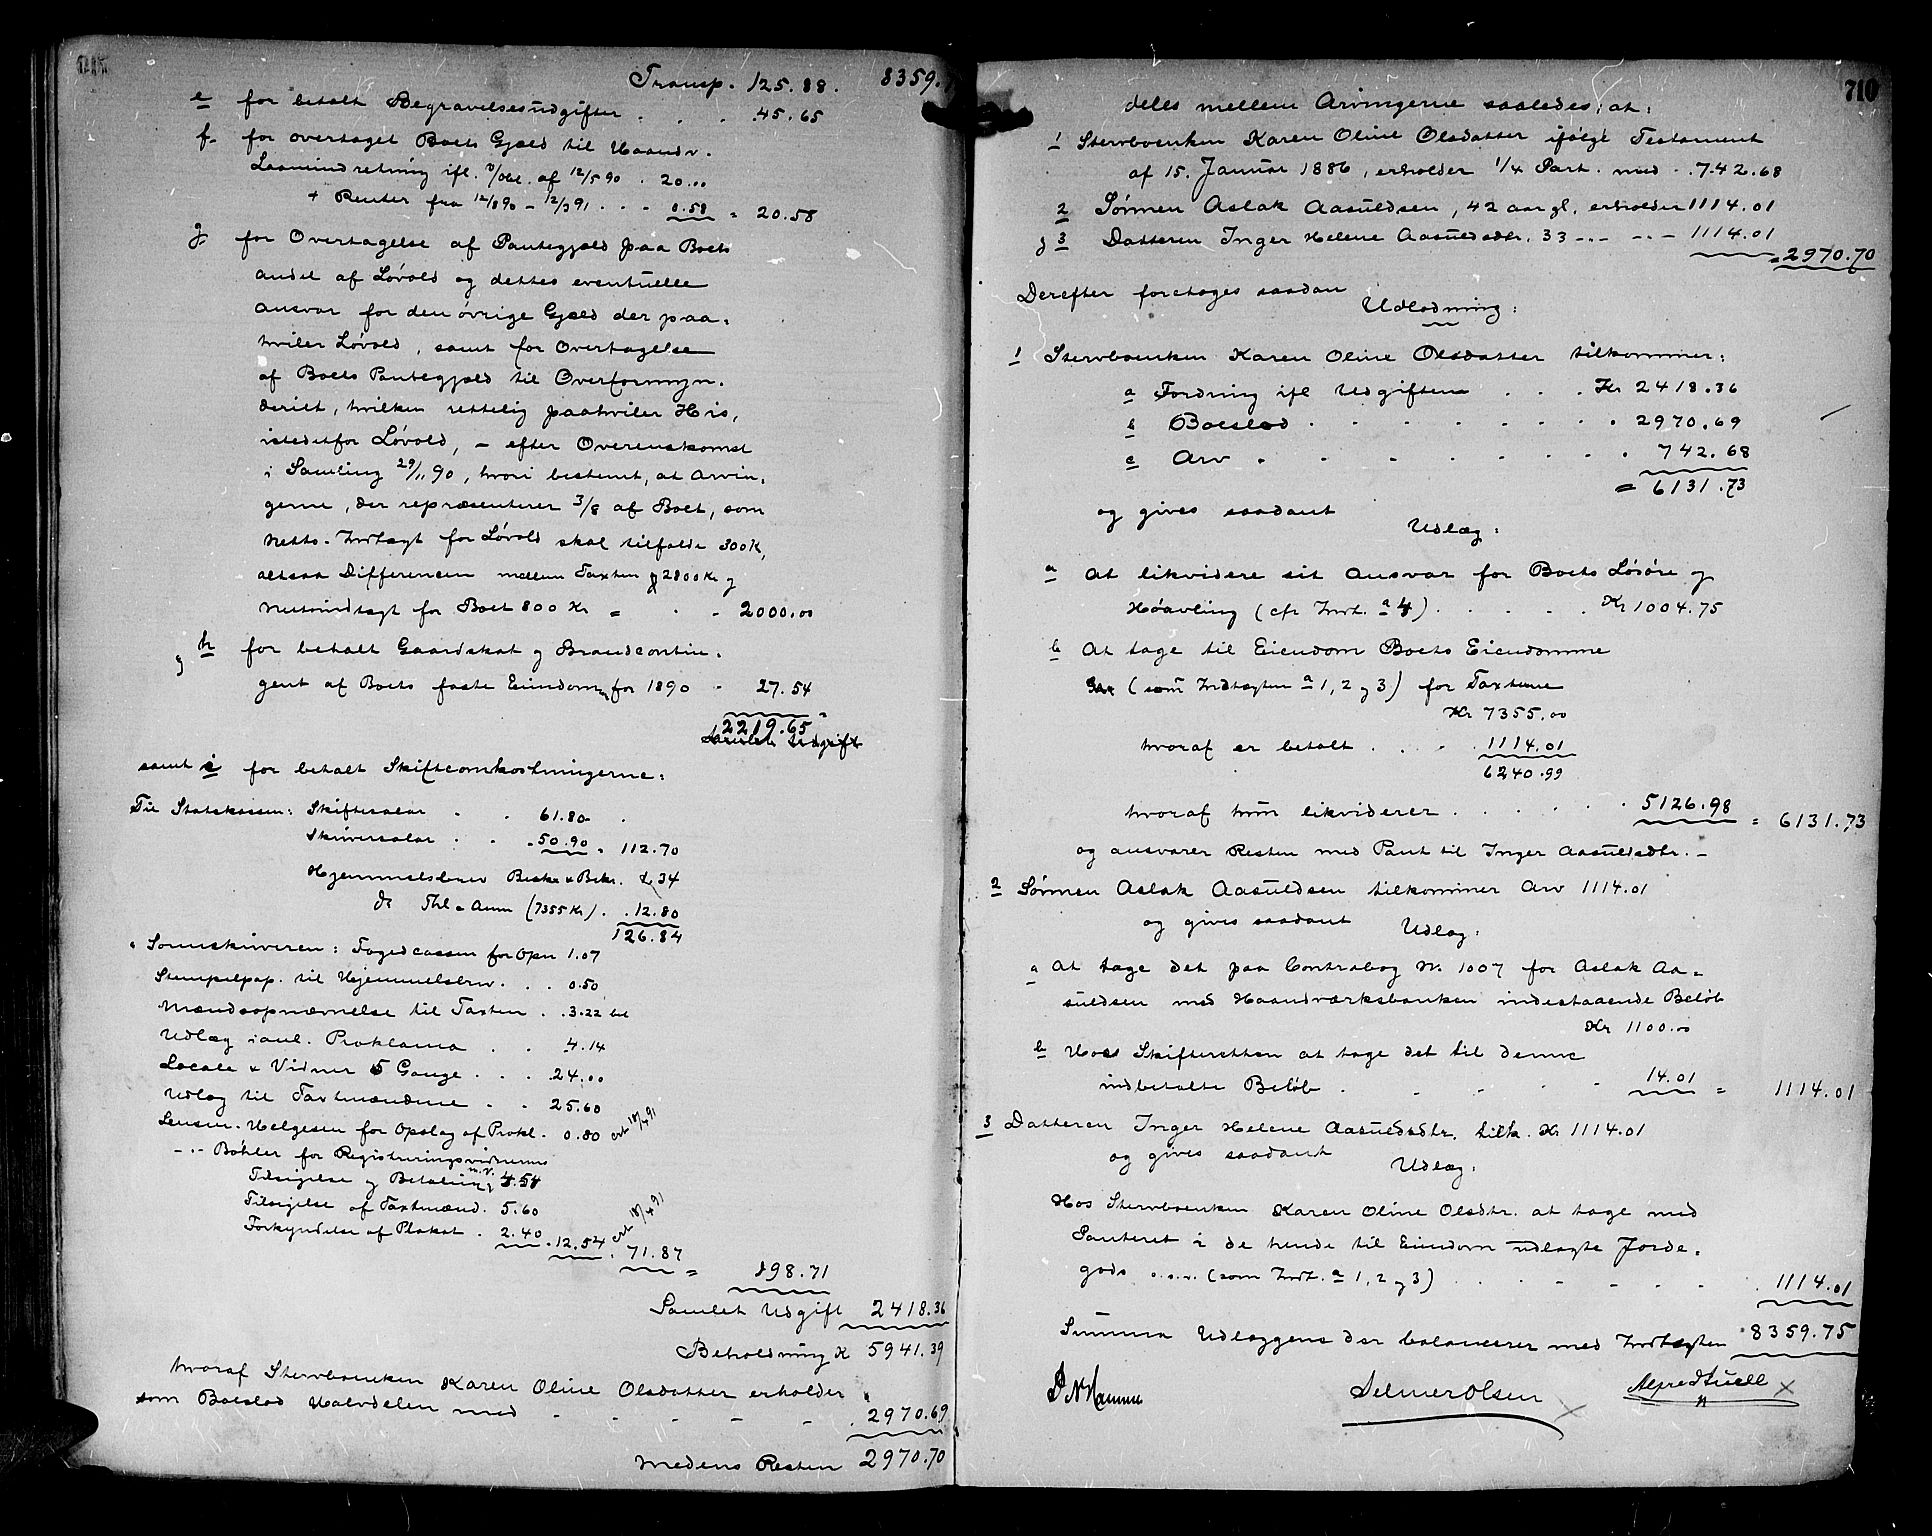 Transp. 125.88. 8359.
e for betalt Begravelsesudgifter . . . 45.65
f. for overtaget Boets Gjæld til Haandv.
Laanindretning ifl. /Obl. af 12/5 90 . 20.00
+ Renter fra 12/8 90 - 12/3 91 . . . 0.58 = 20.58
g. for Overtagelse af Pantegjæld paa Boets
andel af Løvold og dettes eventuelle
ansvar for den øvrige Gjæld der paa-
hviler Løvold, samt for Overtagelse
af Boets Pantegjæld til Overformyn-
deriet, hvilken rettelig paahviler His,
istedetfor Løvold, - efter Overenskomst
i Samling 29/11 90, hvori bestemt, at Arvin-
gerne, der repræsenterer 3/8 af Boet, som
Netto-Indtægt for Løvold skal tilfalde 300 K,
altsaa Differencen mellem Taxten 2800 Kr og
Nettoindtægt for Boet 800 Kr = . . 2000.00
og h for betalt Gaardskat og Brandcontin-
gent af Boets faste Eiendom for 1890 - 27.54
2219.65 =
Samlet Udgift
samt i for betalt Skifteomkostningerne:
Til Statskassen: Skiftesalar . . 61.80 .
Skriversalar . . 50.90 = 112.70
Hjemmelsbrev Besk. & Bekr. 1.34
do Thl - Anm (7355 Kr) . . 12.80
126.84
" Sorenskriveren: Fogedcassen for Opn 1.07
Stempelpap. til Hjemmelsbrev . . . 0.50
Mændsopnævnelse til Taxten . . 3.22
Udlæg i anl. Proklama . . 4.14
Locale & Vidner 5 Gange . . . 24.00
Udlæg til Taxtmændene . . 25.60
Lensm. Helgesen for Opslag af Prokl. . 0.80 18/4 91
- " - Bøhler for Registreringsvidnernes
Tilsigelse og Betaling m.v. 4.54
Tilsigelse af Taxtmænd. 5.60
Forkyndelse af Plakat . 2.40 . 12.54 18/4 91
71.87
= 198.71
Samlet Udgift 2418.36
Beholdning K 5941.39
hvoraf Stervboenken Karen Oline Olsdatter erholder
som Boeslod Halvdelen med - - - - - 2970.69
medens Resten 2970.70
710
deles mellem Arvingerne saaledes, at:
1 Stervboenken Karen Oline Olsdatter ifølge Testament
af 15. Januar 1886, erholder 1/4 Part. med . . 742.68
2 Sønnen Aslak Aasuldsen, 42 aar gl. erholder 1114.01
og 3 Datteren Inger Helene Aasuldsdtr. 33 - " - - " - 1114.01
= 2970.70
Derefter foretoges saadan
Udlodning:
1 Stervboenken Karen Oline Olsdatter tilkommer:
a Fordring ifl Udgiften . . . Kr 2418.36
b Boeslod . . . . . . . . 2970.69
c Arv . . . . . . . . 742.68
= 6131.73
og gives saadant
Udlæg:
a At likvidere sit Ansvar for Boets Løsøre og
Høavling (cfr Indt. a 4) . . . . . Kr 1004.75
b At tage til Eiendom Boets Eiendomme
(som Indtægten a 1, 2 og 3) for Taxterne
Kr 7355.00
hvoraf er betalt . . . . 1114.01
6240.99
hvoraf hun likviderer . . . . . . 5126.98 = 6131.73
og ansvarer Resten med Pant til Inger Aasuldsdtr. -
2 Sønnen Aslak Aasuldsen tilkommer Arv 1114.01
og gives saadant Udlæg:
a At tage det paa Contrabog Nr. 1007 for Aslak Aa-
suldsen med Haandværksbanken indestaaende Beløb
Kr 1100.00
b Hos Skifteretten at tage det til denne
indbetalte Beløb . . . . . 14.01 = 1114.01
3 Datteren Inger Helene Aasuldsdtr. tilk. Kr 1114.01
og gives saadant Udlæg:
Hos Stervboenken Karen Oline Olsdtr. at tage med
Panteret i de hende til Eiendom udlagte Jorde-
gods o.s.v. (som Indt. a 1, 2 og 3) . . . - - - . 1114.01
Summa Udlæggene der balancerer med Indtægten 8359.75
Selmer Olsen